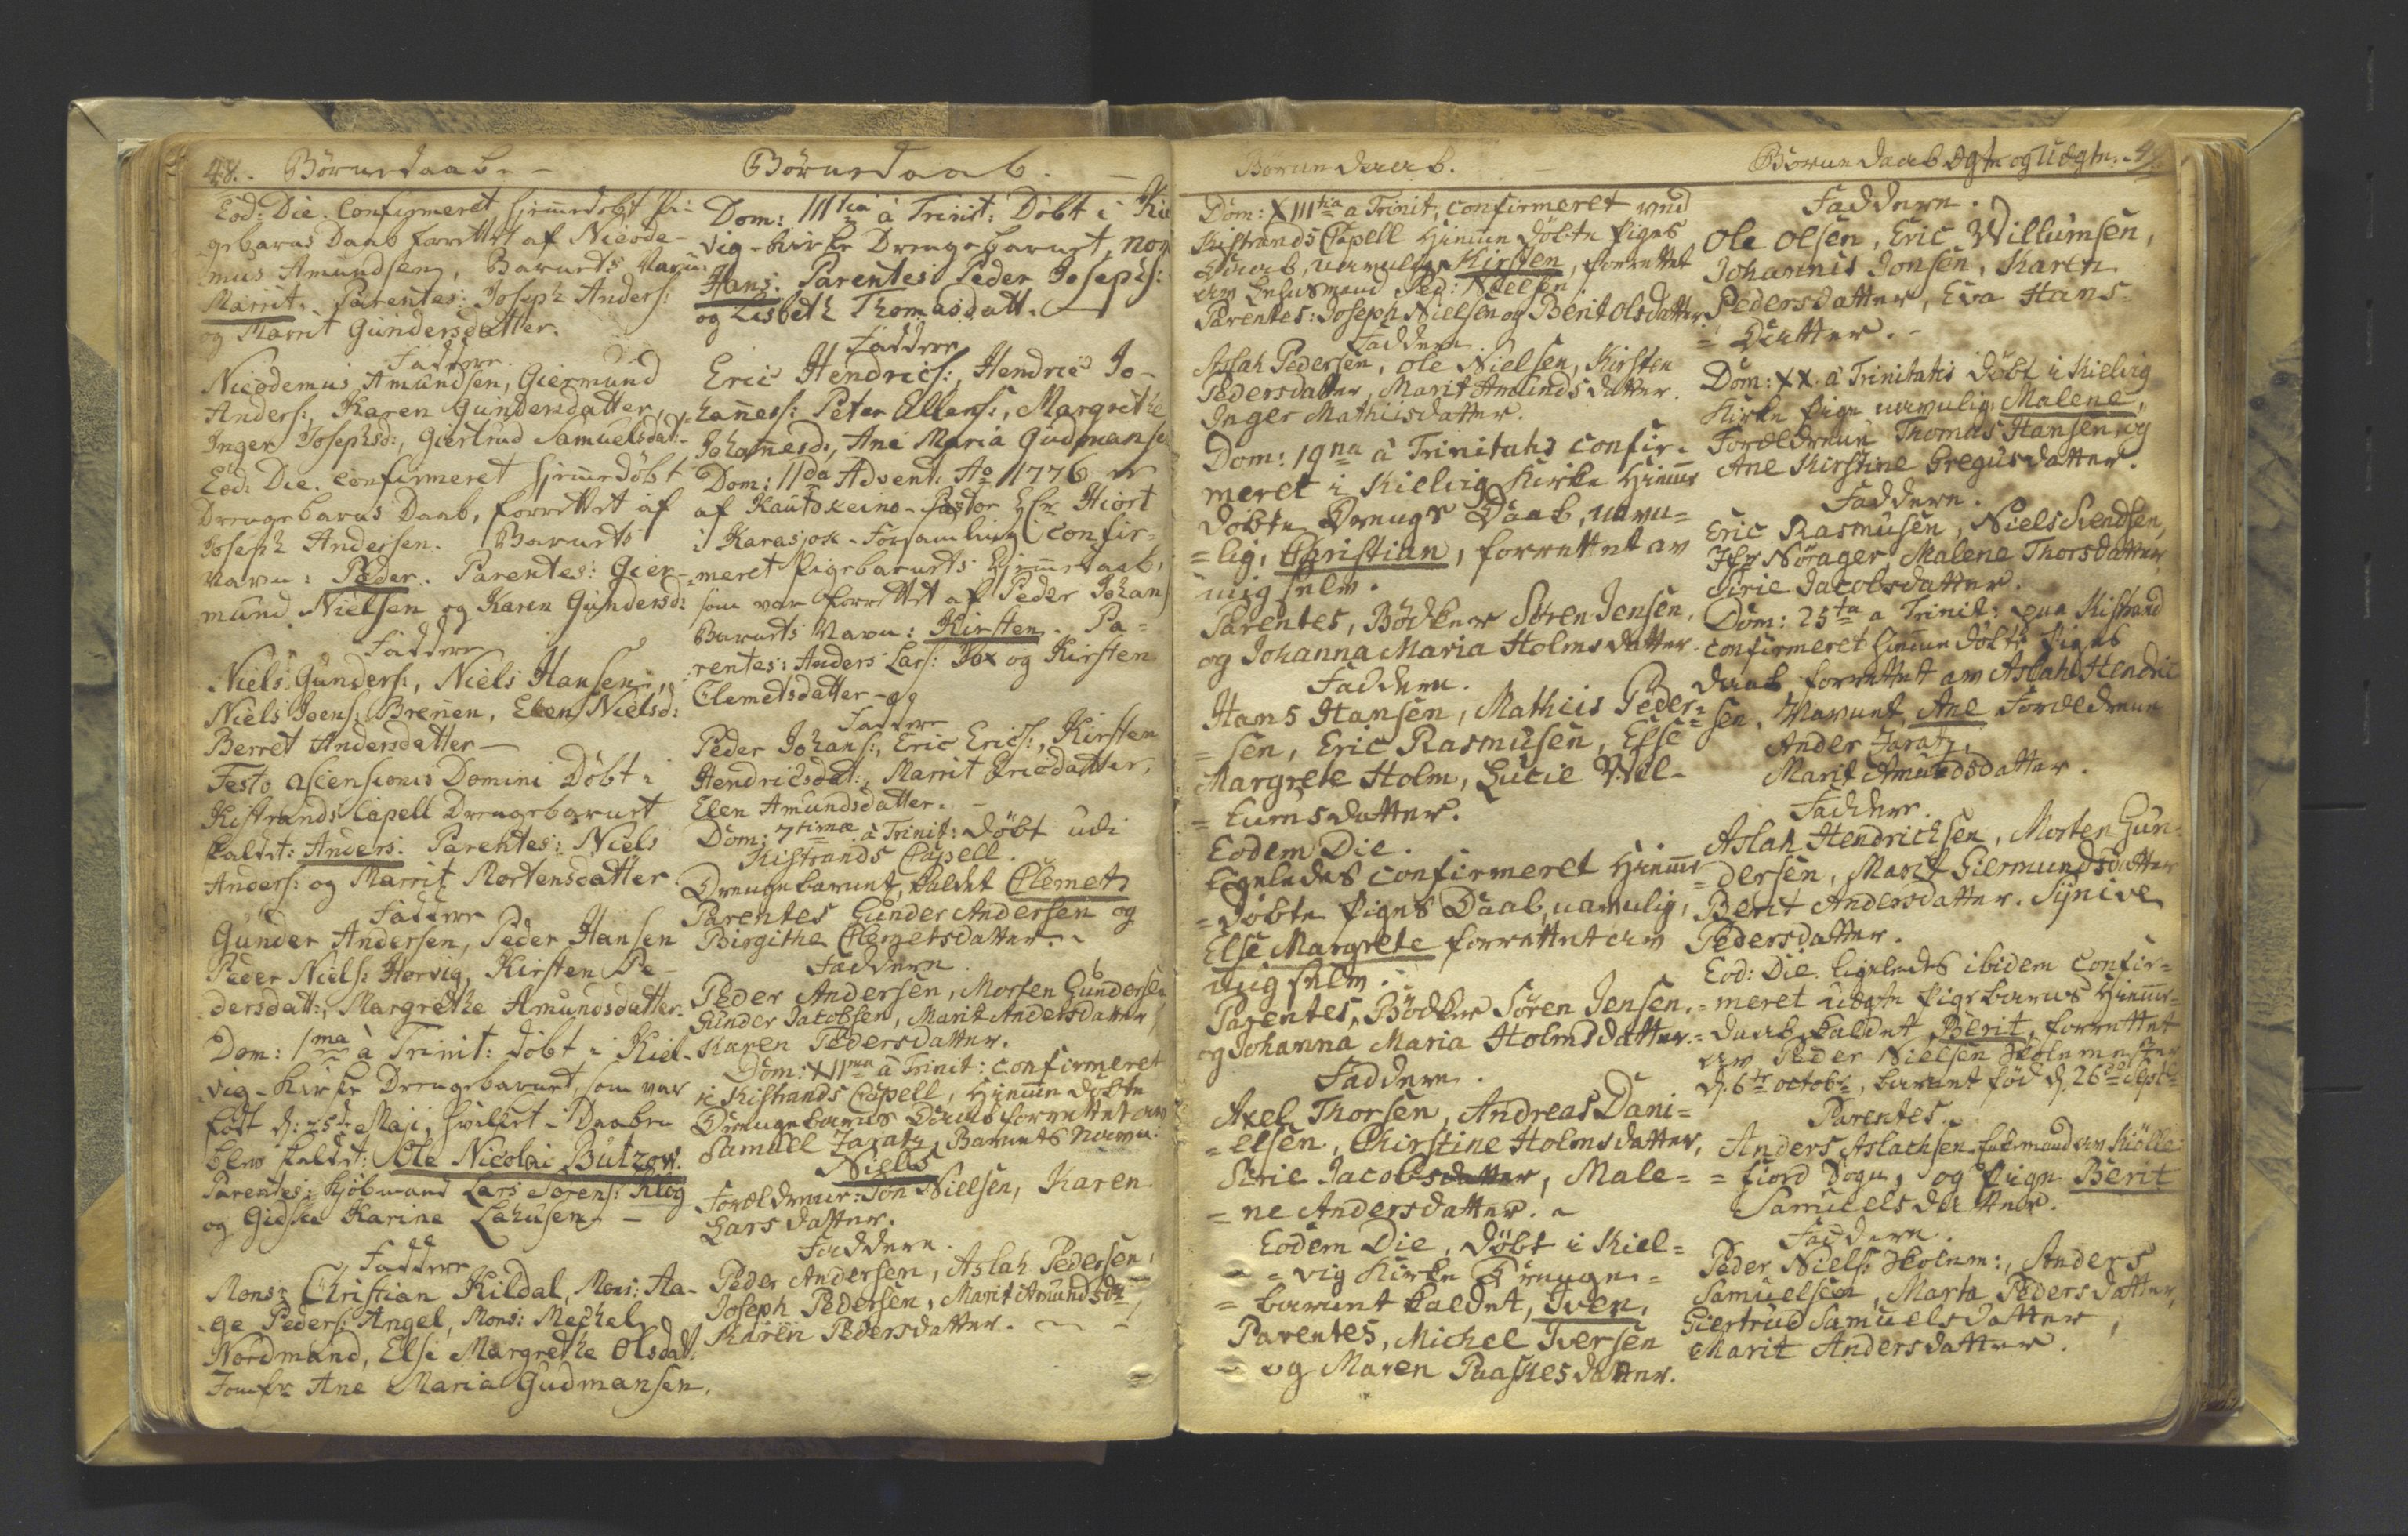 48. Børnedaab. -
Eod: Die. Confirmeret hiemedøbt Pi-
gebarns Daab forrettet af Nicode-
mus Amundsen, Barnets Navn:
Marrit. Parentes: Joseph Anders:
og Marrit Gundersdatter.
Faddere
Nicodemus Amundsen, Giermund
Anders:, Karen Gundersdatter,
Inger Josephsd:, Giertrud Samuelsdat:
Eod: Die. confirmeret hiemedøbt
Drengebarns Daab, forrettet af
Joseph Andersen. Barnets
Navn: Peder. Parentes: Gier-
mund Nielsen og Karen Gundersd:
Faddere
Niels Gunders:, Niels Hansen,
Niels Joens: Brenen, Elen Nielsd:
Berret Andersdatter -
Festo ascensionis Domini Døbt i
Kistrands Capell Drengebarnet
kaldet: Anders. Parentes: Niels
Anders: og Marrit Mortensdatter.
Faddere
Gunder Andersen, Peder Hansen
Peder Niels: Horvig, Kirsten Pe-
dersdatt:, Margrethe Amundsdatter.
Dom: 1ma à Trinit: døbt i Kiel-
vig-Kirke Drengebarnet, som var
født d: 25de Maji, hvilket i Daaben
blev kaldet: Ole Nicolai Butzow.
Parentes: Kjøbmand Lars Sørens: Klog
og Gidske Karine Lahusen -
Faddere
Monsr Christian Kildal, Mons: Aa-
ge Peders: Angel, Mons: Mechel
Nordmand, Else Margrethe Olsdat:
Jomfr Ane Maria Gudmansen.
Børnedaab. -
Dom: IIItia à Trinit: Døbt i Kiel
vig-Kirke Drengebarnet, nom
Hans. Parentes Peder Josephs:
og Lisbeth Thomasdatt.
Faddere
Eric Hendrics:, Hendric Jo-
hanness: Peter Ellens:, Margrethe
Johannesd:, Ane Maria Gudmanse
Dom: IIda Advent. Ao 1776 er
af Kautokeino-Pastor Hr. Hiort
i Karasjok-Forsamling Confir-
meret Pigebarnets Hiemedaab,
som var forrettet af Peder Johans
Barnets Navn: Kirsten. Pa-
rentes: Anders Lars: Fox og Kirsten
Clemetsdatter -
Faddere
Peder Johans:, Eric Erics:, Kirsten
Hendricsdat:, Marrit Ericdatter,
Elen Amundsdatter. -
Dom: 7timæ à Trinit: døbt udi
Kistrands Capell.
Drengebarnet, kaldet Clemet,
Parentes Gunder Andersen og
Birgithe Clemetsdatter.
Faddere.
Peder Andersen, Morten Gundersen
Gunder Jacobsen, Marit Andersdatter,
Karen Pedersdatter.
Dom: XIIma à Trinit: confirmeret
i Kistrands Capell, Hiemme døbte
Drengebarns Daab forrettet av
Samuel Zaratz, Barnets Navn:
Niels
Forældrene: Jon Nielsen, Karen
Larsdatter.
Faddere.
Peder Andersen, Aslah Pedersen,
Joseph Pedersen, Marit Amundsdr,
Karen Pedersdatter.
Børne daab.
Dom: XIIItia a Trinit, confirmeret ved
Kistrands Capell Hiemme døbte Piges
Daab, navnlig, Kirsten, forrettet
av Lehnsmand Ped: Nielsen.
Parentes: Joseph Nielsen og Berit Olsdatter.
Faddere.
Aslah Pedersen, Ole Nielsen, Kirsten
Pedersdatter, Marit Amundsdatter.
Inger Mathiisdatter.
Dom: 19na à Trinitatis Confir-
meret i Kielvig Kirke Hiemme
døbte Drengs Daab, navn=
=lig, Christian, forrettet av
mig selv.
Parentes, Bødker Søren Jensen,
og Johanna Maria Holmsdatter.
Faddere.
Hans Hansen, Mathiis Peder=
=sen, Eric Rasmusen, Else
Margrete Holm, Lucie Vil-
=lumsdatter.
Eodem Die.
Ligeledes confirmeret Hiemme
=døbte Piges Daab, navnlig,
Else Margrete forrettet av
mig selv.
Parentes, Bødker Søren Jensen.
og Johanna Maria Holmsdatter.
Faddere.
Axel Thorsen, Andreas Dani=
=elsen, Chirstine Holmsdatter,
Sirie Jacobsdatter, Male=
=ne Andersdatter.
Eodem Die, døbt i Kiel=
=vig Kirke Drenge=
=barnet kaldet, Iven,
Parentes, Michel Iversen
og Maren Paaskesdatter.
Børne daab ægte og Uægte. 49
Faddere.
Ole Olsen, Eric Willumsen,
Johannis Jonsen, Karen
Pedersdatter, Eva Hans=
=datter. -
Dom: XX. à Trinitatis døbt i Kielvig
Kirke Pige navnlig, Malene,
Forældrene Thomas Hansen og
Ane Kirstine Gregusdatter.
Faddere.
Eric Rasmusen, Niels Svendsen,
Hr Nørager, Malene Thorsdatter,
Sirie Jacobsdatter.
Dom: 25ta a Trinit: paa Kistrand
confirmeret Hiemme døbte Piges
daab forrettet av Aslah Hendric
sen, Navnet, Ane Forældrene
Ander Zaratz,
Marit Amundsdatter.
Faddere.
Aslah Hendrichsen, Morten Gun=
=dersen, Marit Giermundsdatter
Berit Andersdatter. Synive
Pedersdatter.
Eod: Die. ligeledes ibidem Confir=
=meret uægte Pigebarns Hiemme=
=daab, kaldet, Berit, forrettet
av Peder Nielsen Skolemester
d. 6te octobr, barnet fød d. 26de Septr
Parentes.
Anders Aslachsen Enkemand av Kiølle=
=fiord Sogn, og Pigen Berit
Samuelsdatter.
Faddere.
Peder Niels: Skolem:, Anders
Samuelsen, Marta Pedersdatter,
Giertrud Samuelsdatter,
Marit Andersdatter.